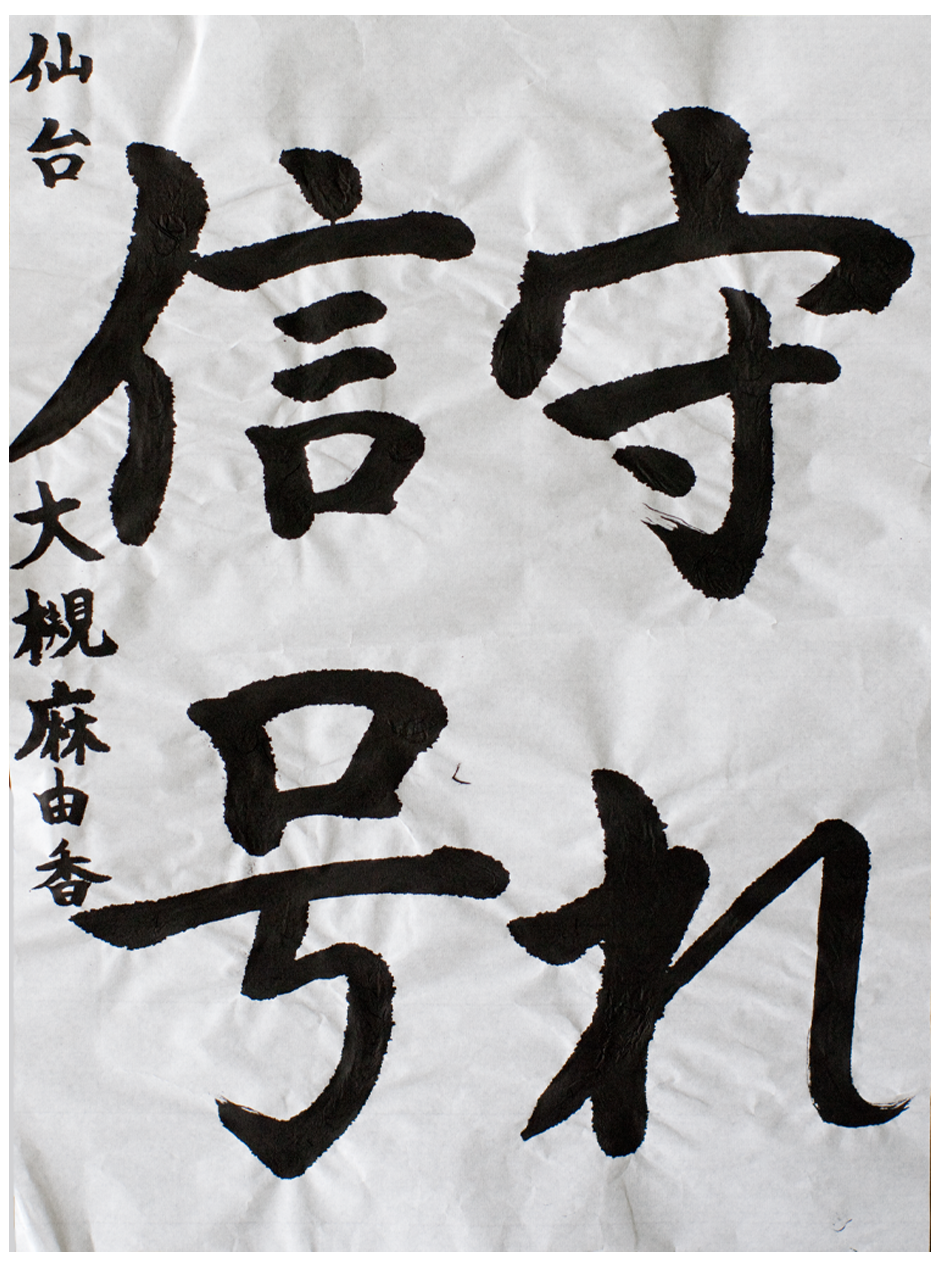 守れ
信号
仙台 大槻麻由香